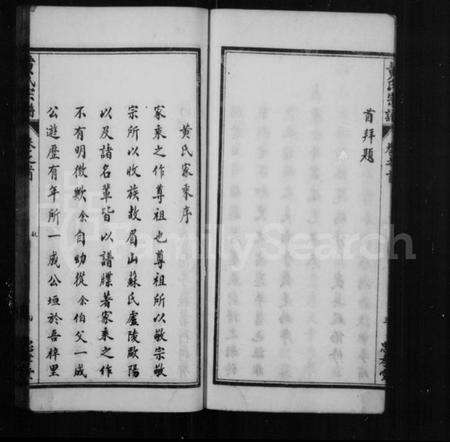 首拜題
黃氏家乘序
家乘之作尊祖也尊祖所以敬宗敬
宗所以收族故眉山蘇氏廬陵歐陽
以及諸名輩皆以譜牒著家乘之作
不有明徵歟余自幼從余伯父一成
公遊歷有年所一成公垣於吾梓里
黃氏宗譜
卷之首
FamilySearch